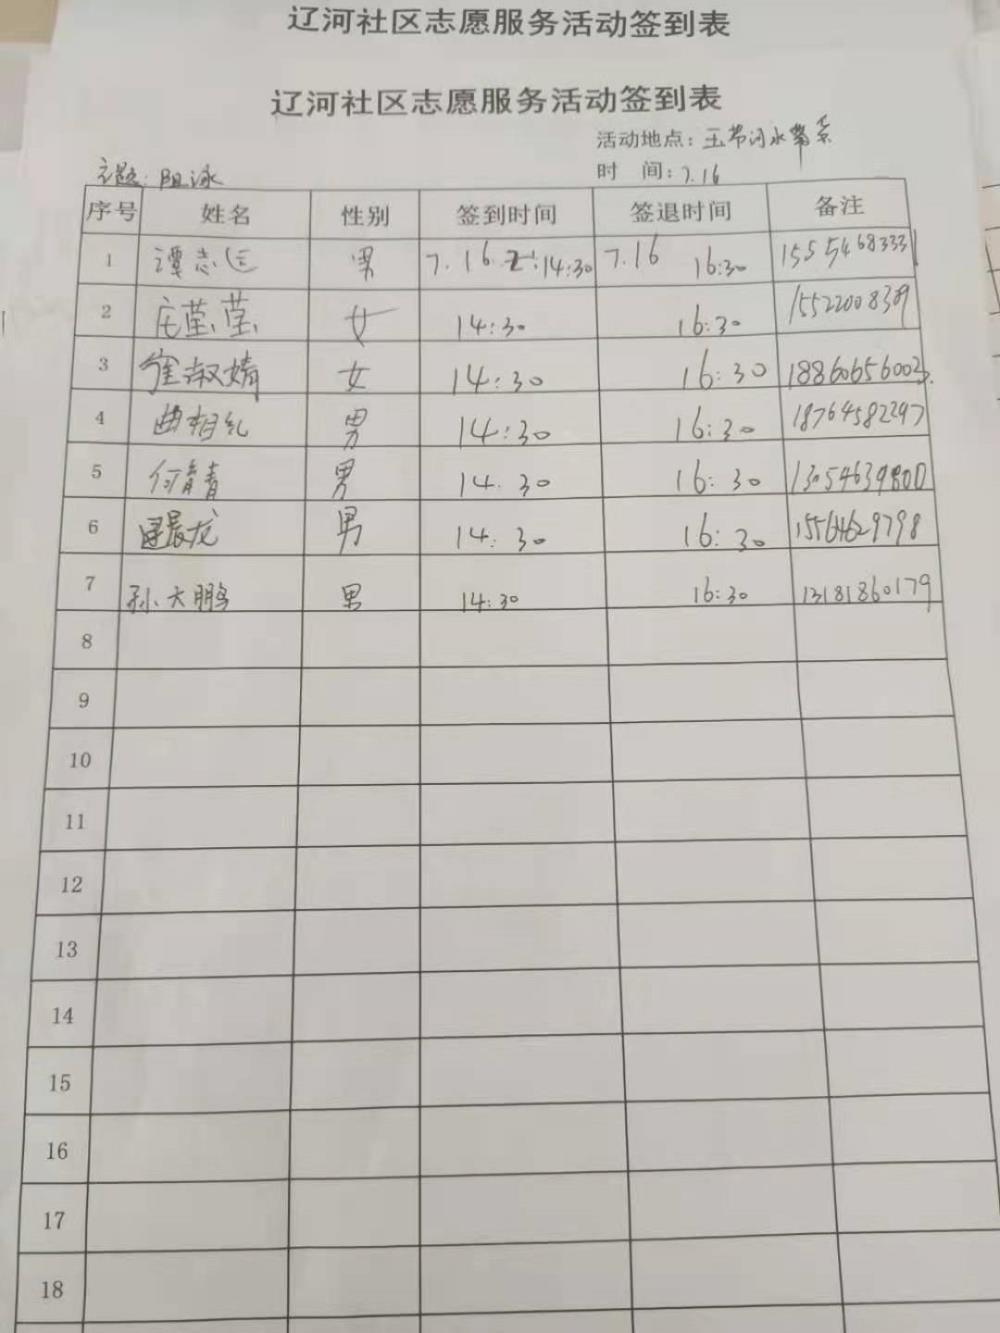 辽河社区志愿服务活动签到表
辽河社区志愿服务活动签到表
活动地点：玉带河水
主题：阻泳 时 间：7.16
序号 姓名 性别 签到时间 签退时间 备注
1 谭志 男 7.16 14:30 7.16 16:30 15554683331
2 庄莹莹 女 14:30 16:30 15522008389
3 崔淑婧 女 14:30 16:30 18860656002
4 曲相 男 14:30 16:30 18764582297
5 何青青 男 14:30 16:30 13054639800
6 晨龙 男 14:30 16:30 15564629798
7 孙大鹏 男 14:30 16:30 13181860179
8
9
10
11
12
13
14
15
16
17
18